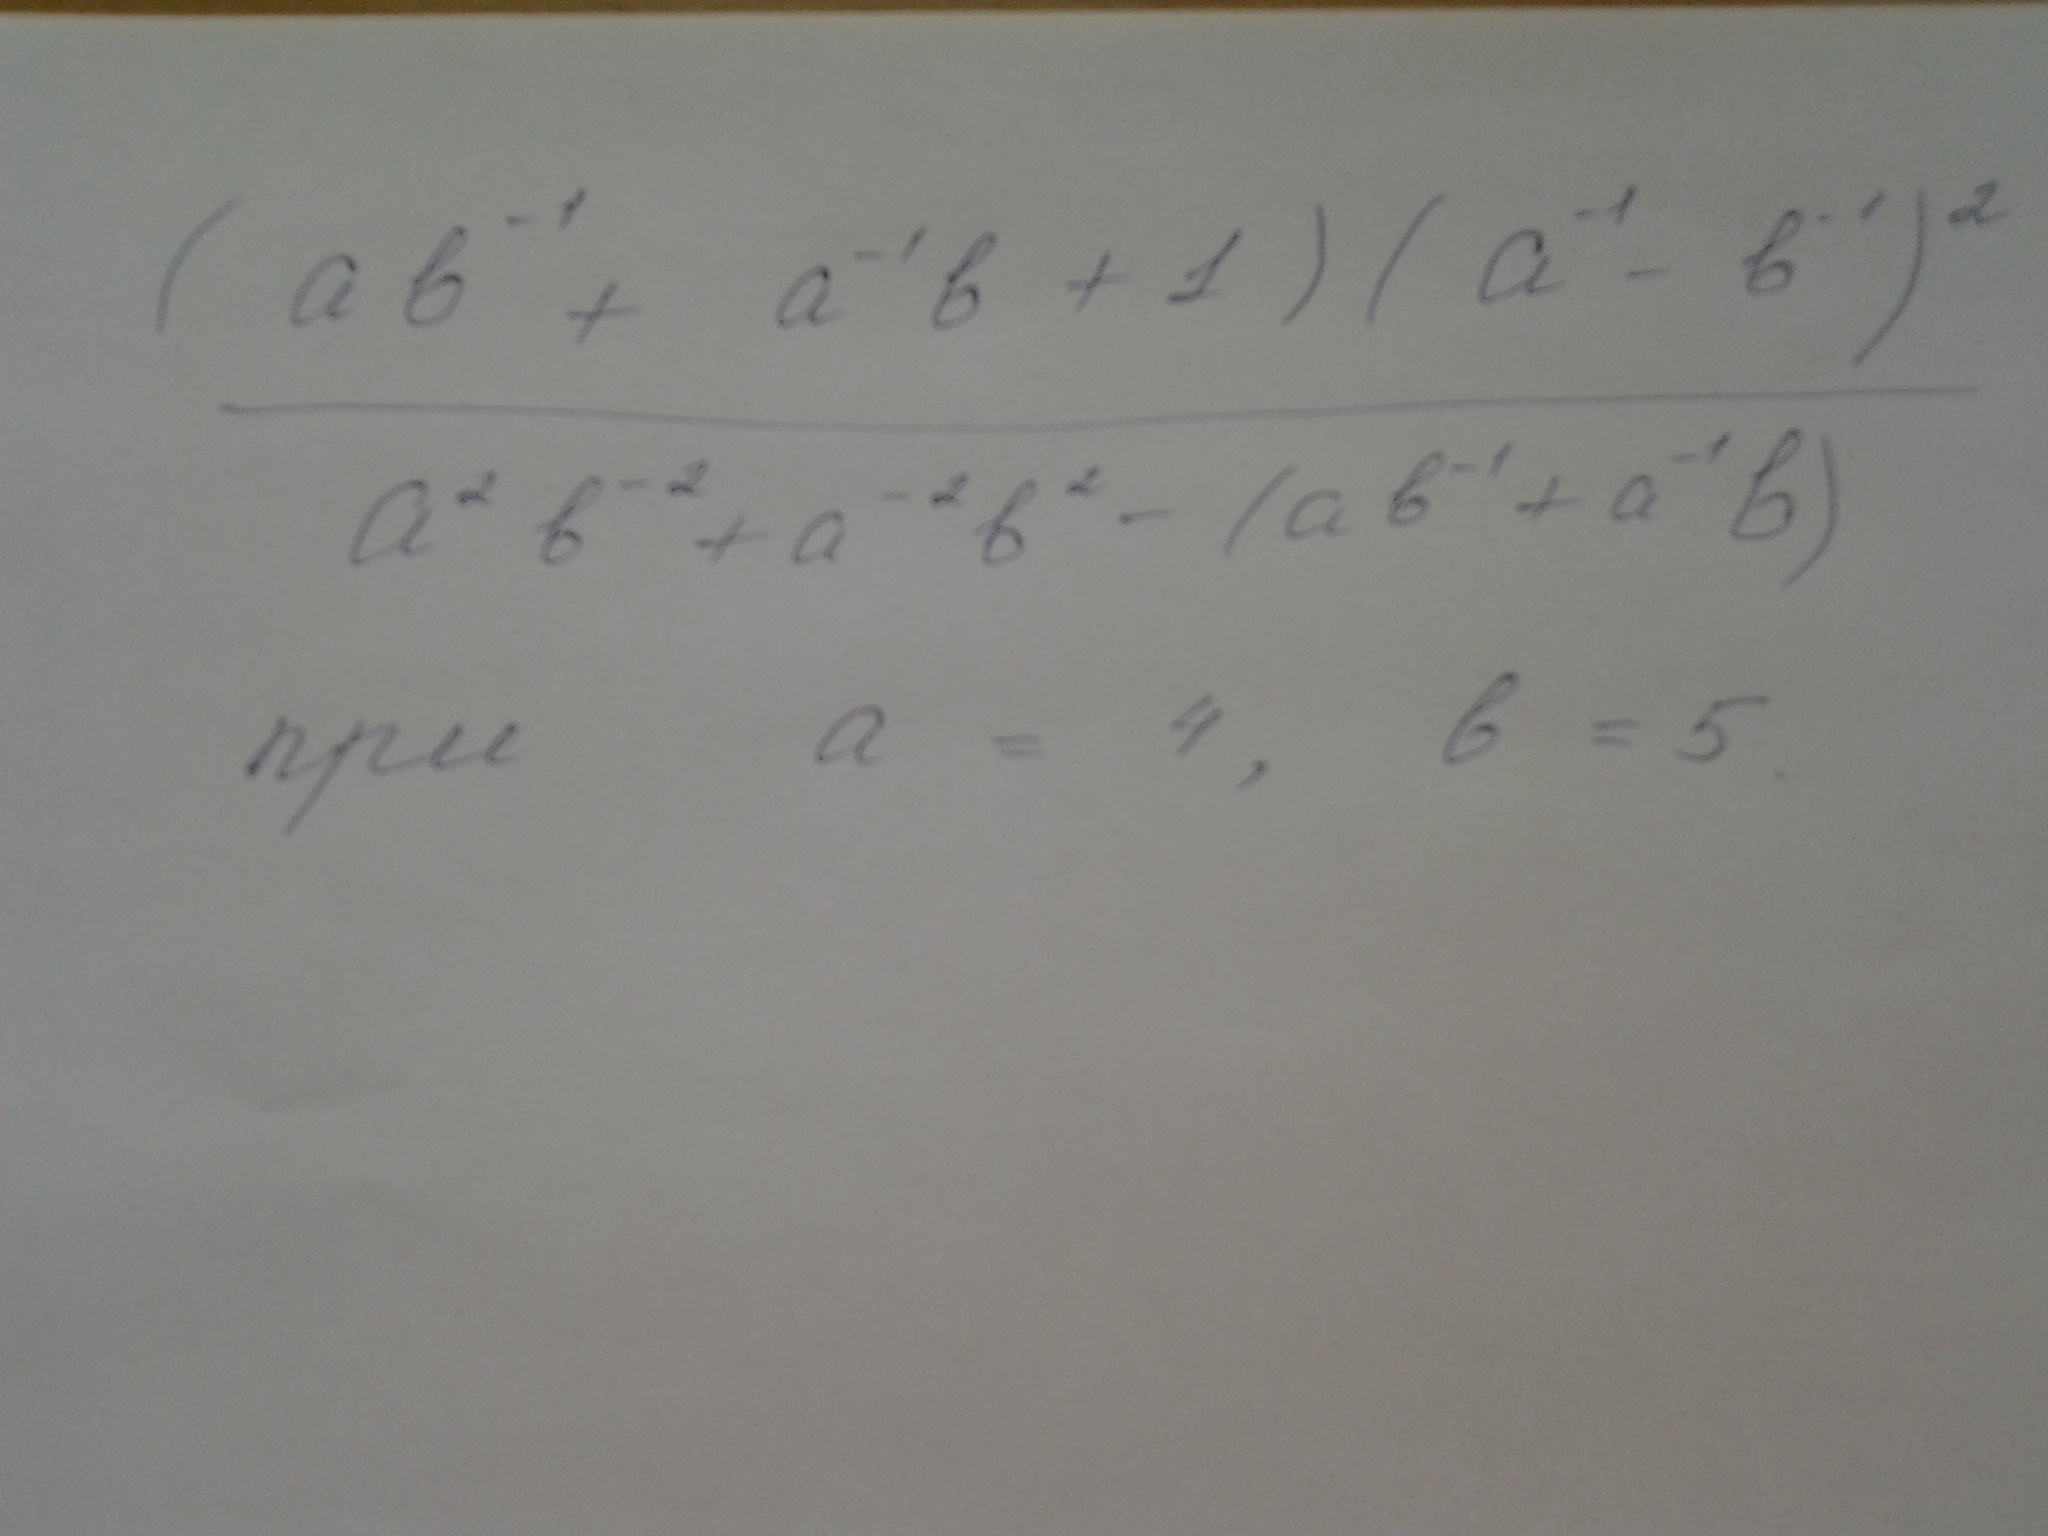 (ab⁻¹ + a⁻¹b + 1)(a⁻¹ - b⁻¹)²
a²b⁻² + a⁻²b² - (ab⁻¹ + a⁻¹b)
при a = 4, b = 5.